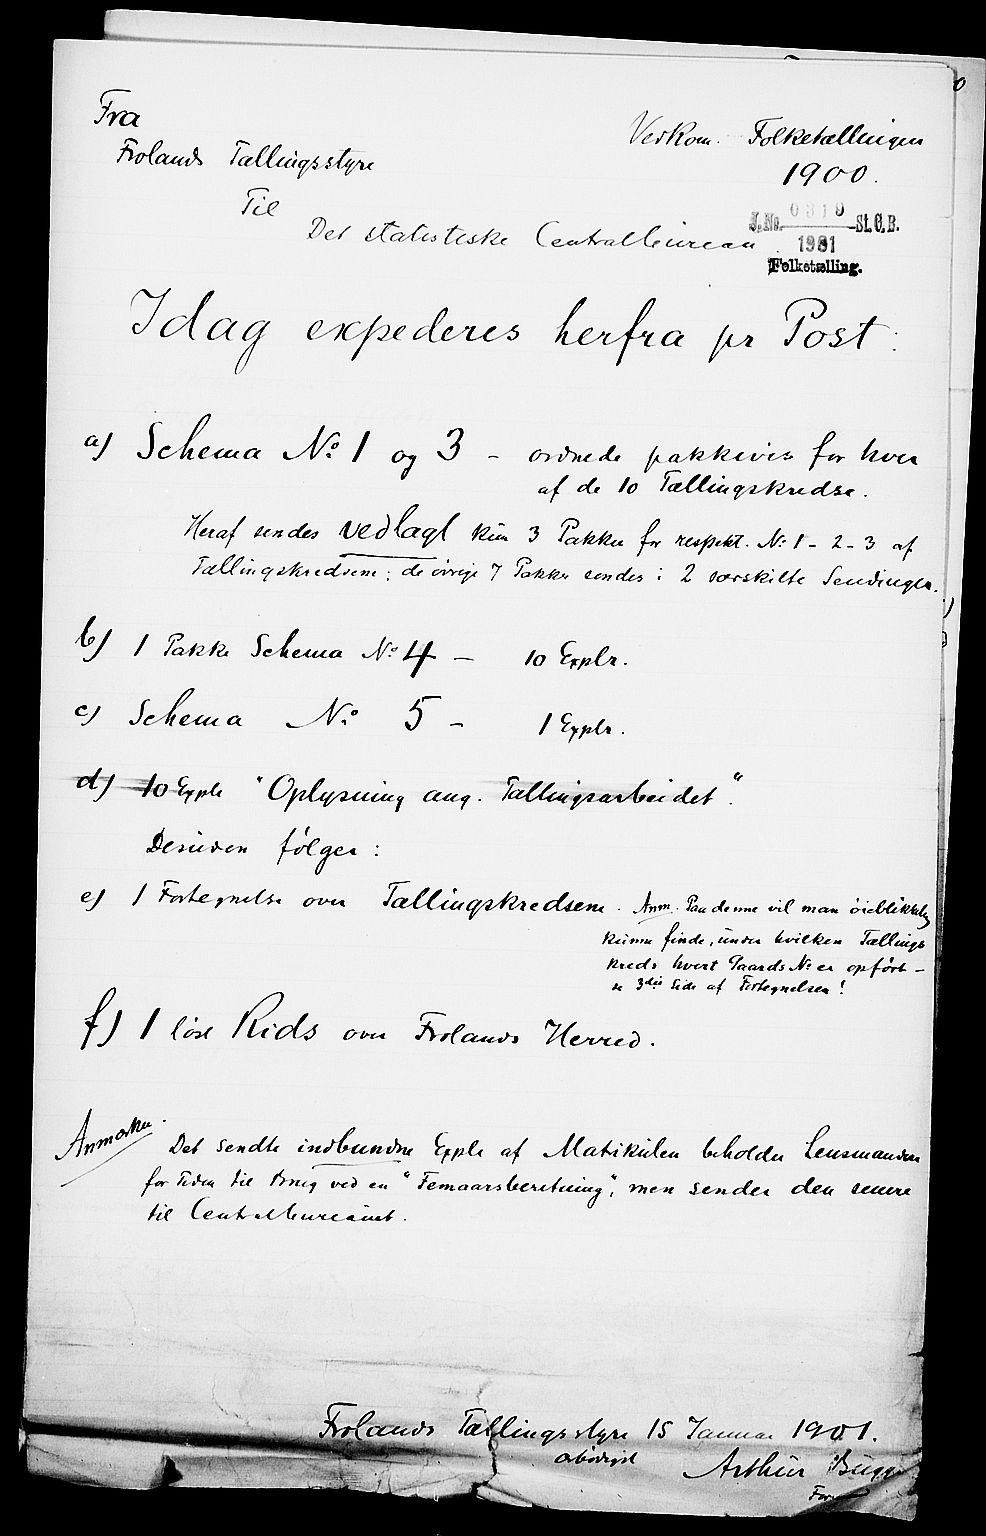 Fra
Frolands Tællingsstyre
Til
Det statistiske Centralbureau
Vedkom. Folketællingen
1900.
J.No. 0319 St.C.B.
1901
Folketælling.
Idag expederes herfra pr Post:
a) Schema No. 1 og 3 - ordnede pakkevis for hver
af de 10 Tællingskredse.
Heraf sendes vedlagt kun 3 Pakker for respekt. No. 1 - 2 - 3 af
Tællingskredsene; de øvrige 7 Pakker sendes i 2 særskilte Sendinger.
b) 1 Pakke Schema No. 4 - 10 Explr.
c) Schema No. 5 - 1 Explr.
d) 10 Explr "Oplysning ang. Tællingsarbeidet".
Desuden følger:
e) 1 Fortegnelse over Tællingskredsene.
Anm. Paa denne vil man øieblikkelig
kunne finde, under hvilken Tællings
kreds hvert Gaards No. er opført -
se 3die Side af Fortegnelsen!
f) 1 løst Rids over Frolands Herred.
Anmærkn.
Det sendte indbundne Explr af Matrikulen beholder Lensmanden
for Tiden til Brug ved en "Femaarsberetning", men sender den senere
til Centralbureauet.
Frolands Tællingsstyre 15 Januar 1901.
ærbødigst
Arthur Bugge